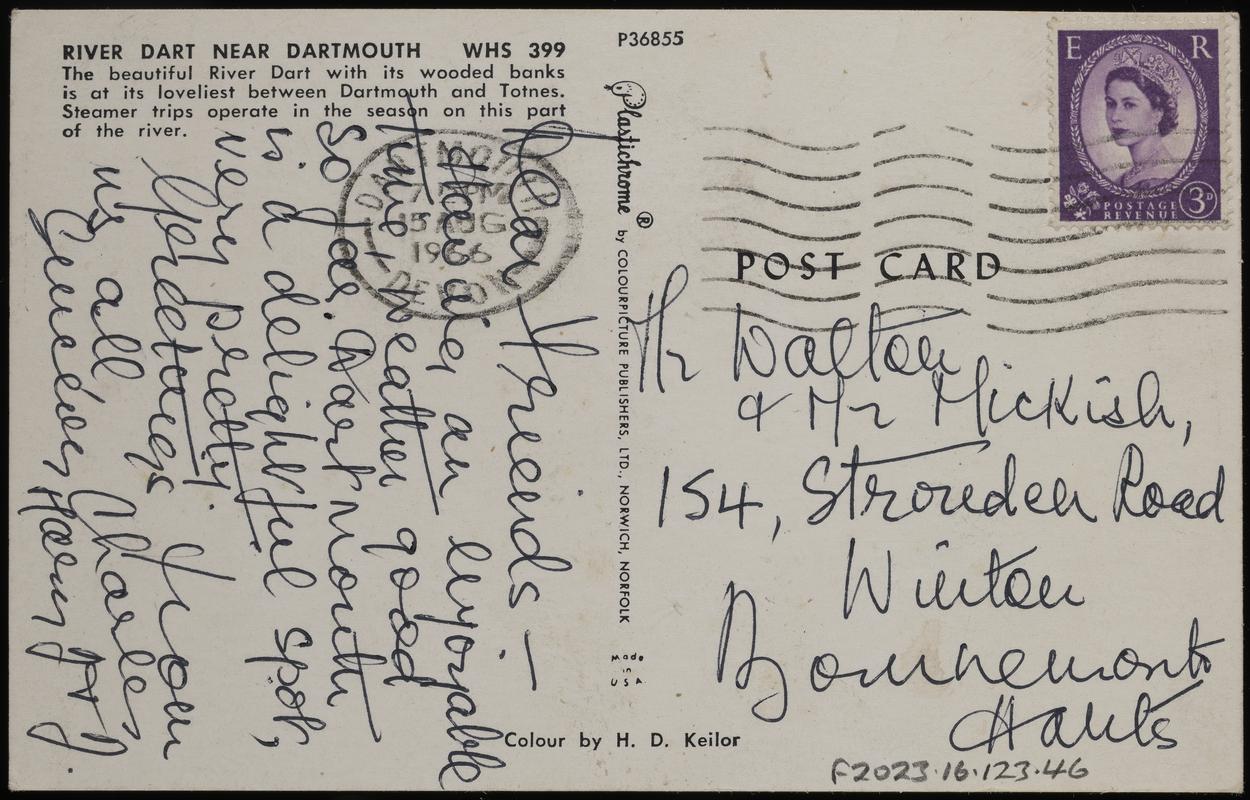 RIVER DART NEAR DARTMOUTH WHS 399
The beautiful River Dart with its wooded banks
is at its loveliest between Dartmouth and Totnes.
Steamer trips operate in the season on this part
of the river.
P36855
Dear Friends —
Having an enjoyable
time + weather good
so far. Dartmouth
is a delightful spot,
very pretty.
Greetings from
us all Charles,
Harry
Plastichrome ® by COLOURPICTURE PUBLISHERS, LTD., NORWICH, NORFOLK
Made
in
USA
Colour by H. D. Keilor
E R
POSTAGE
REVENUE
3D
DARTMOUTH
15 AUG
1966
DEVON
POST CARD
Mr Walton
& Mr Mickish,
154, Strouden Road
Winton
Bournemouth
Hants
F2023.16.123.46